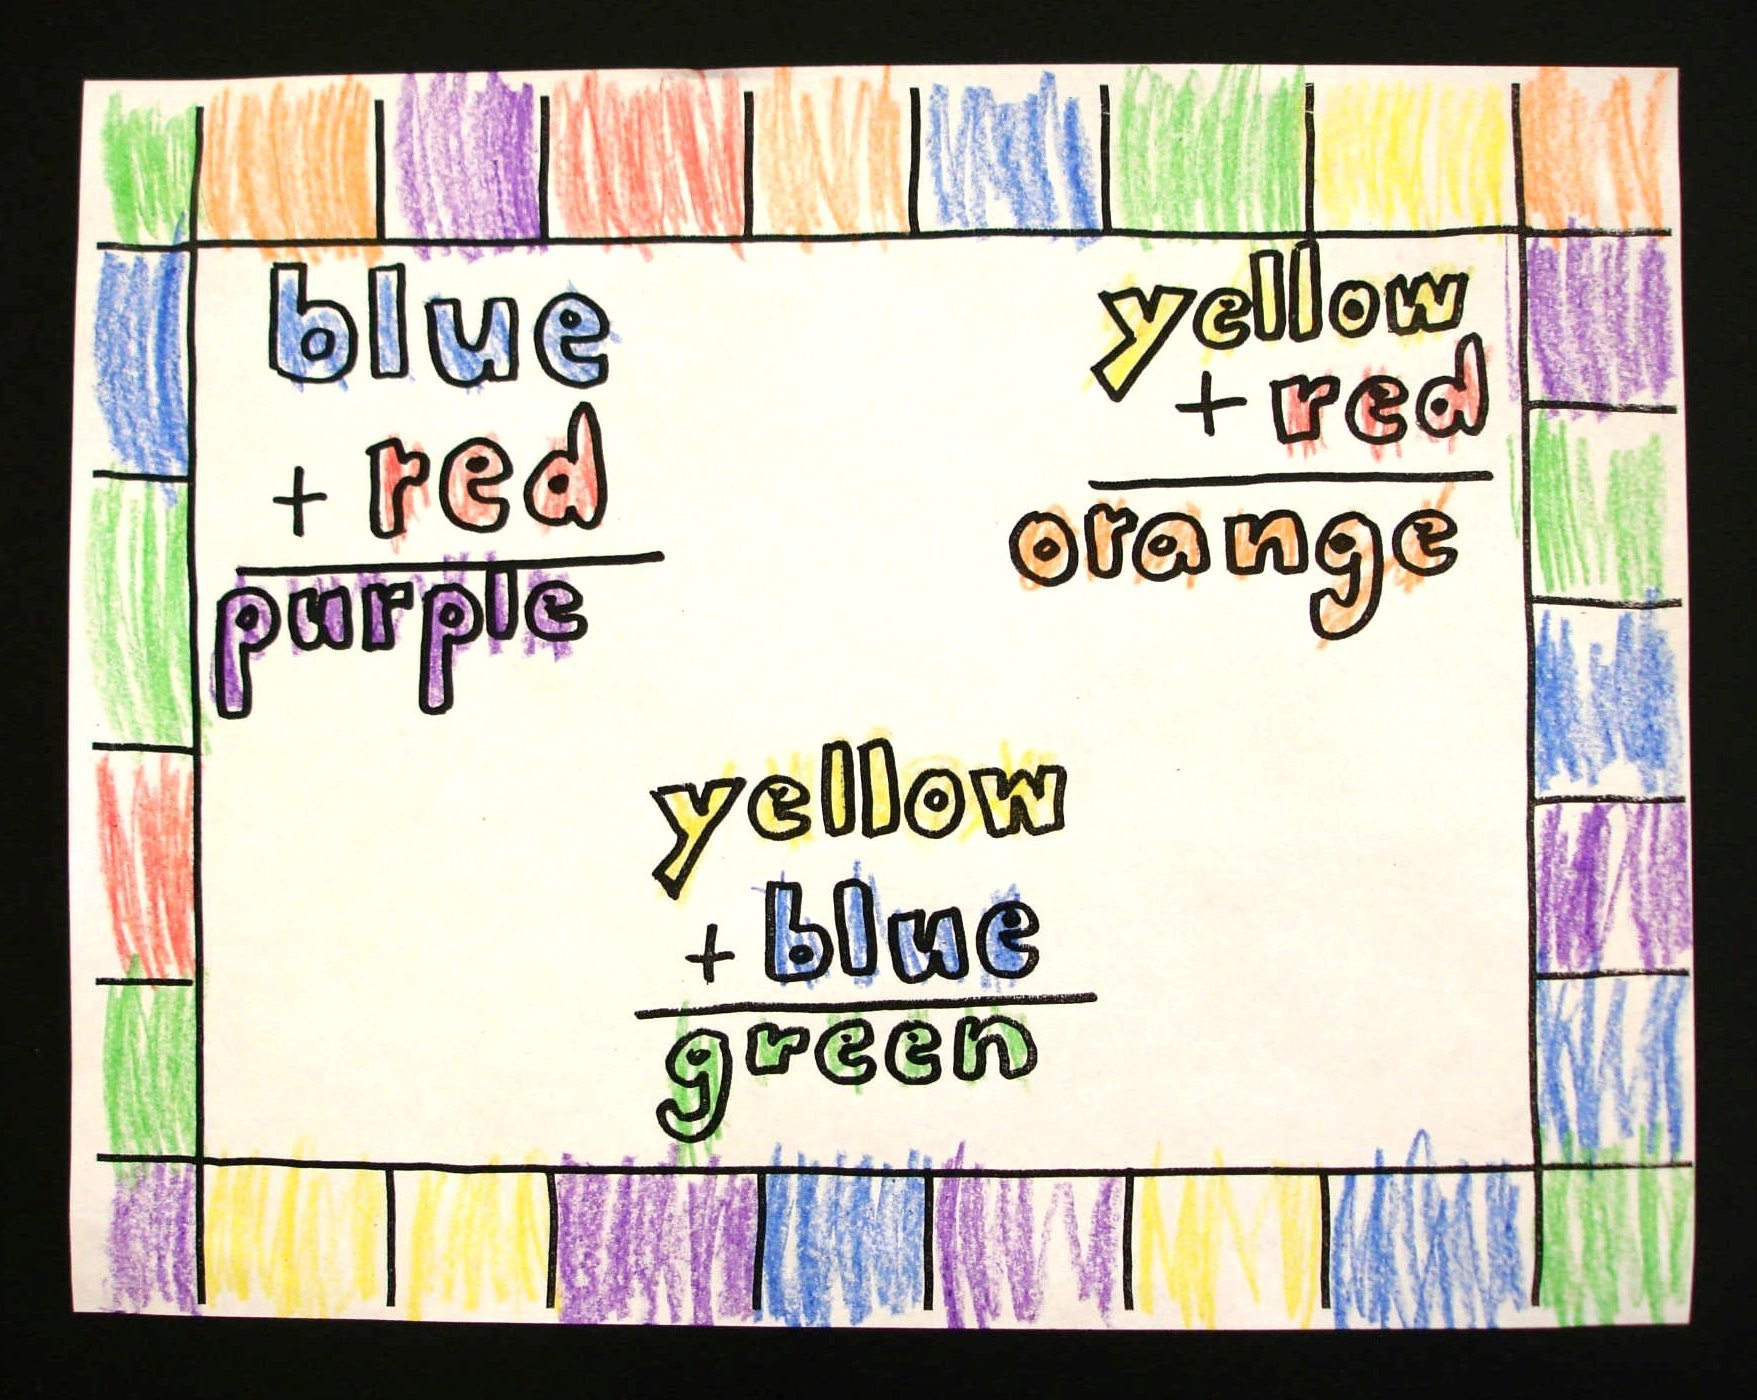 blue
+ red
purple
yellow
+ red
orange
yellow
+ blue
green